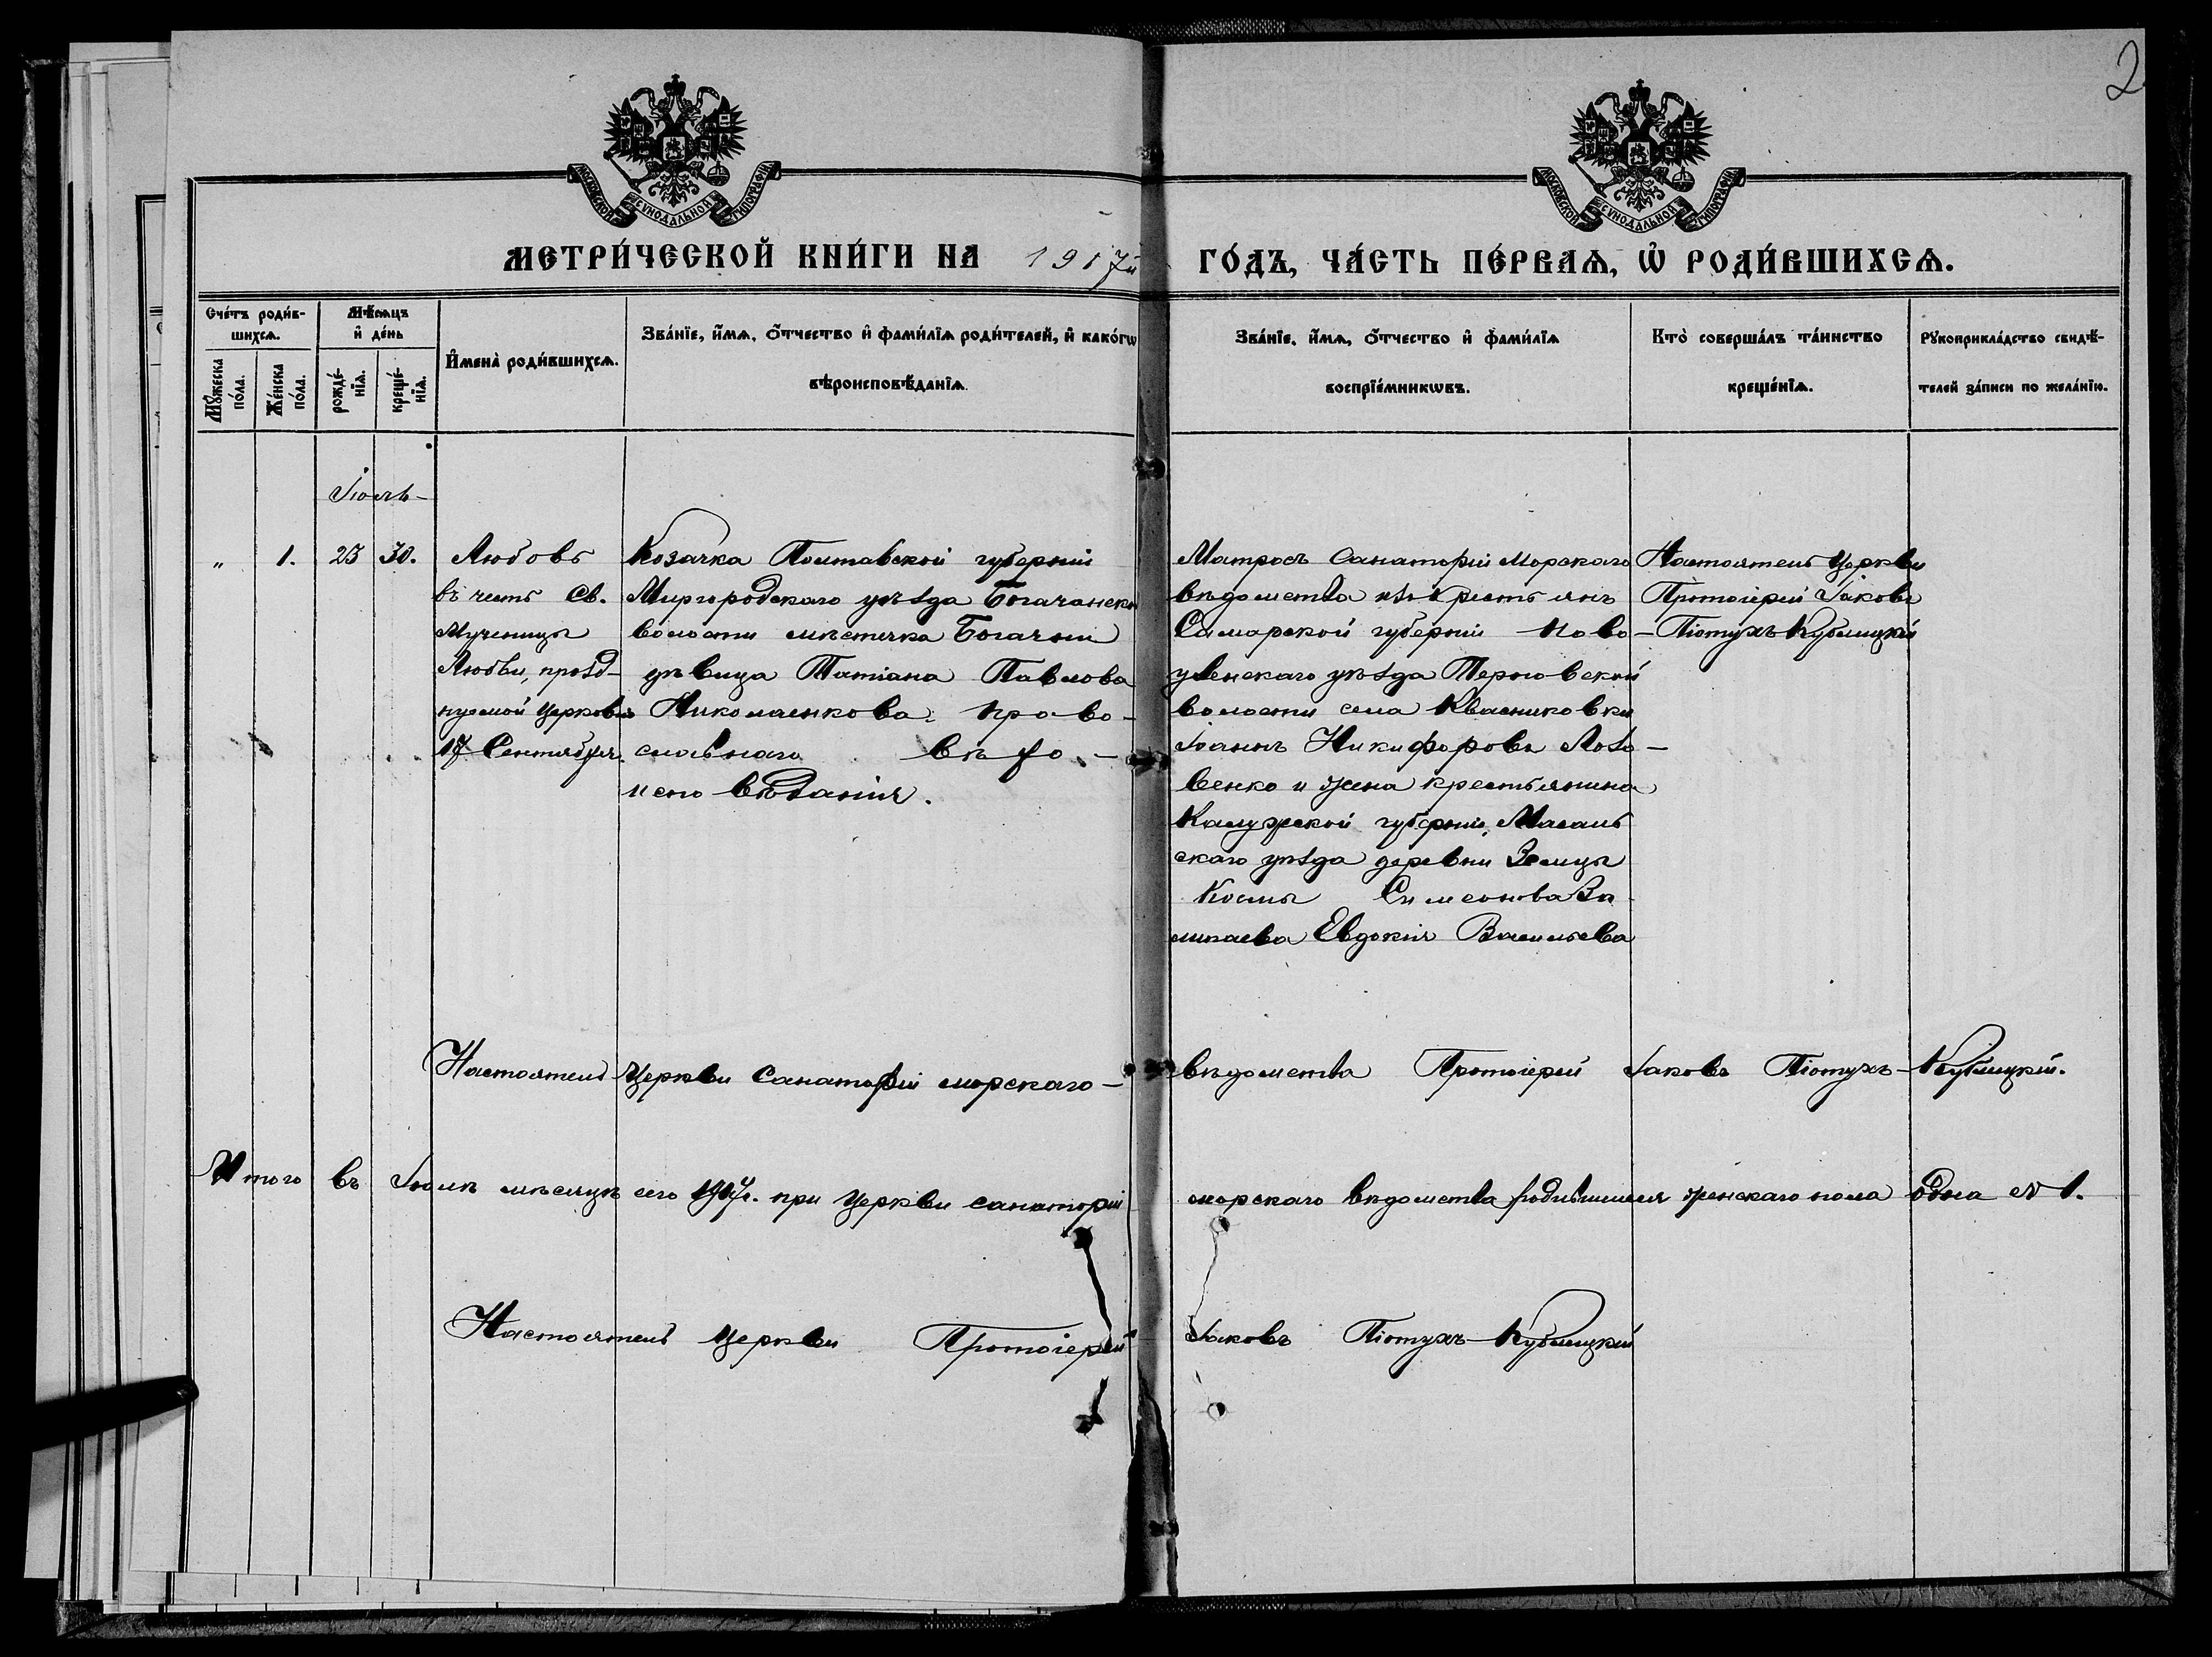 2
МОСКОВСКОЙ СѴНОДАЛЬНОЙ ТИПОГРАФІИ
МОСКОВСКОЙ СѴНОДАЛЬНОЙ ТИПОГРАФІИ
МЕТРИ́ЧЕСКОЙ КНИ́ГИ НА 1917й ГО́ДЪ, ЧА́СТЬ ПЕ́РВАѦ, Ѡ҆ РОДИ́ВШИХСѦ.
Сче́тъ роди́в-
шихсѧ.
Мꙋ́жеска по́ла.
Же́нска по́ла.
Мѣ́сѧцъ
и҆ де́нь
рожде́-
нїѧ.
креще́-
нїѧ.
И҆мена̀ роди́вшихсѧ.
Зва́нїе, и҆́мѧ, ѻ҆́тчество и҆ фами́лїѧ роди́телей, и҆ како́гѡ
вѣроисповѣ́данїѧ.
Зва́нїе, и҆́мѧ, ѻ҆́тчество и҆ фами́лїѧ
воспрїе́мникѡвъ.
Кто̀ соверша́лъ та́инство
креще́нїѧ.
Рꙋкоприкла́дство свидѣ́-
телей за́писи по жела́нїю.
Іюль-
" 1. 23 30.
Любовь
въ честь Св.
Мученицы
Любви, празд-
нуемой Церковью
17 Сентября.
Козачка Полтавской губерніи
Миргородскаго уѣзда Богачанской
волости мѣстечка Богачки
дѣвица Татіана Павлова
Николаенкова: право-
славнаго вѣро-
исповѣданія.
Матросъ Санаторіи Морского
вѣдомства изъ крестьянъ
Самарской губерніи Ново-
узенскаго уѣзда Терновской
волости села Квасниковки
Іоаннъ Никифоровъ Лозо-
венко и жена крестьянина
Калужской губерніи, Масаль
скаго уѣзда деревни Земцы
Космы Симеонова
Евдокія Васильева
Настоятель Церкви
Протоіерей Іаковъ
Піотухъ Кублицкій
Настоятель Церкви Санаторіи морского- вѣдомства Протоіерей Іаковъ Піотухъ-Кублицкій.
Итого въ Іюлѣ мѣсяцѣ сего 1917г. при Церкви санаторіи морского вѣдомства родившихся женскаго пола одна № 1.
Настоятель Церкви Протоіерей Іаковъ Піотухъ-Кублицкій